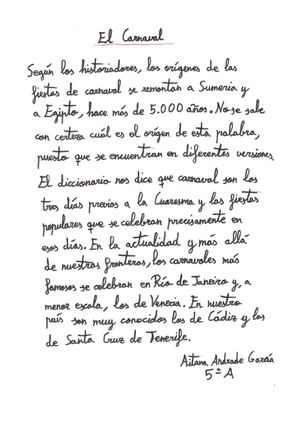 El Carnaval
Según los historiadores, los orígenes de las
fiestas de carnaval se remontan a Sumeria y
a Egipto, hace más de 5.000 años. No se sabe
con certeza cuál es el origen de esta palabra,
puesto que se encuentran en diferentes versiones.
El diccionario nos dice que carnaval son los
tres días previos a la Cuaresma y las fiestas
populares que se celebran precisamente en
esos días. En la actualidad y más allá
de nuestras fronteras, los carnavales más
famosos se celebran en Río de Janeiro y, a
menor escala, los de Venecia. En nuestro
país son muy conocidos los de Cádiz y los
de Santa Cruz de Tenerife.
Aitana Andrade García
5º A